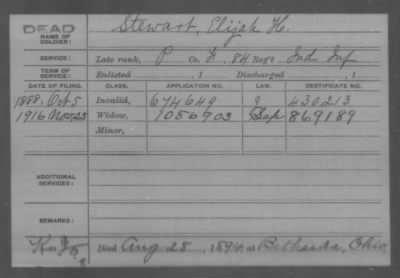 DEAD
NAME OF SOLDIER: Stewart, Elijah H.
SERVICE: Late rank, P Co. H, 84 Reg't Ind Inf
TERM OF SERVICE: Enlisted , 1 Discharged , 1
DATE OF FILING. CLASS. APPLICATION NO. LAW. CERTIFICATE NO.
1888. Oct 5 Invalid, 674649 J 430213
1916 Nov 23 Widow, 1056703 Gep 869189
Minor,
ADDITIONAL SERVICES:
REMARKS:
Died Aug 28, 1894, at Bethesda, Ohio,